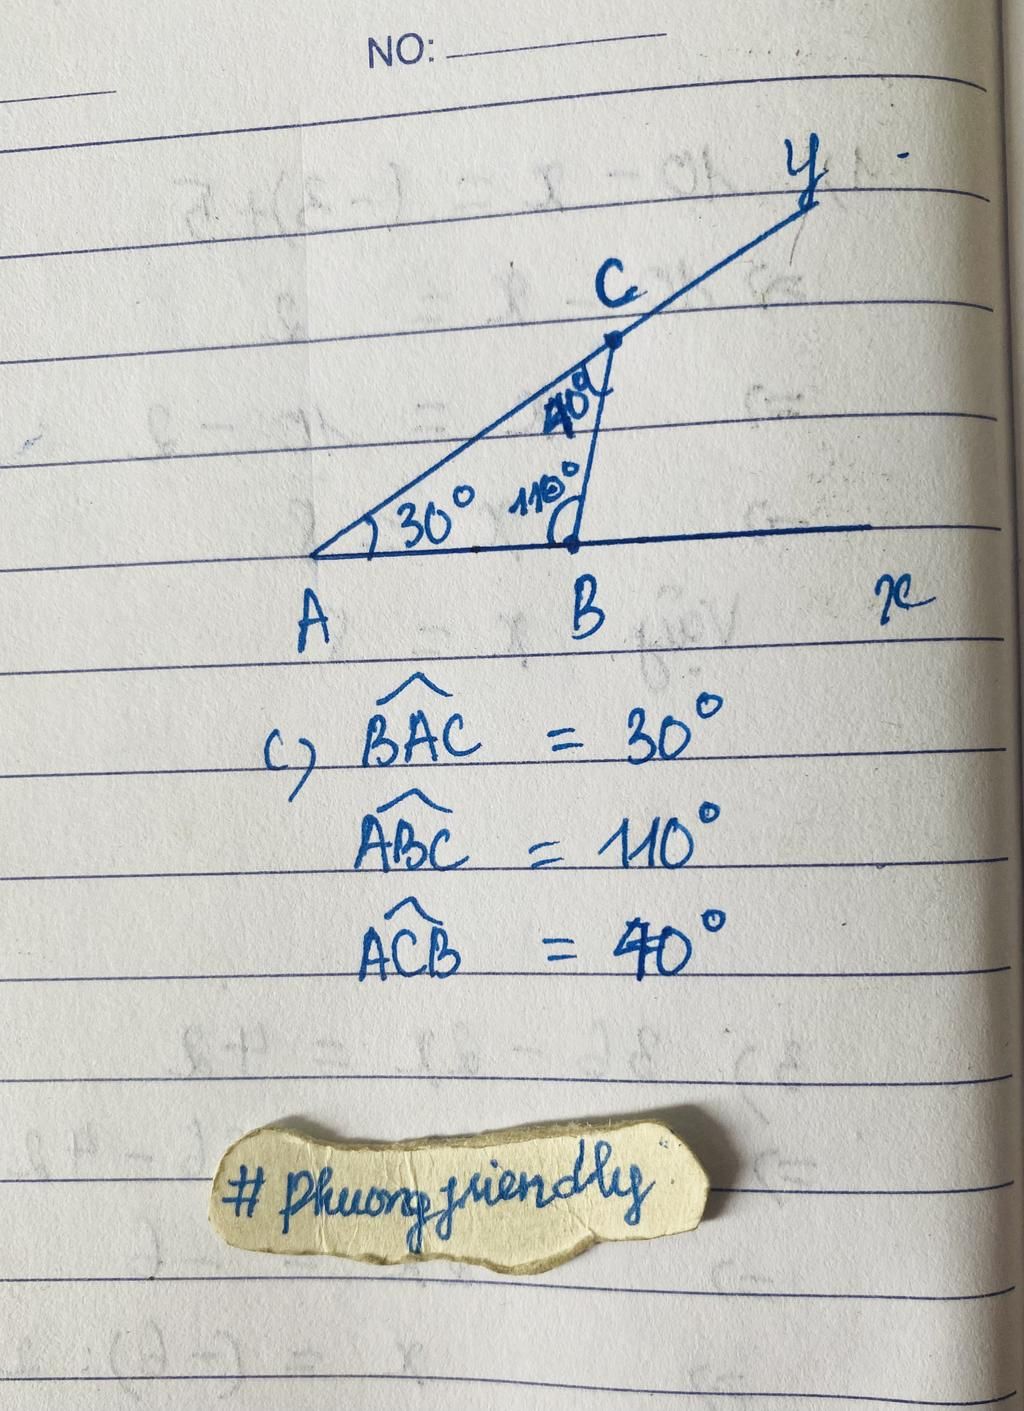 NO:
y
C
40°
110°
30°
A B x
c) BAC = 30°
ABC = 110°
ACB = 40°
# Phuongfriendly